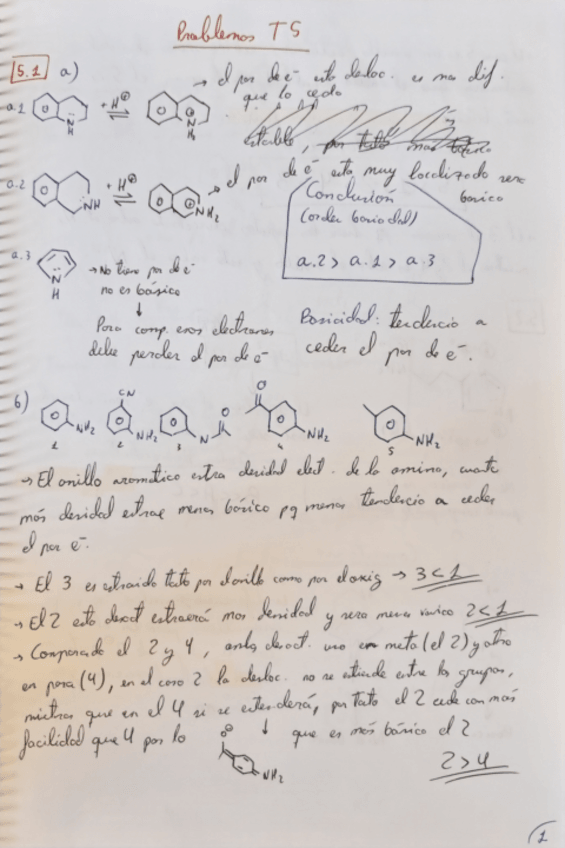 Problemas T5
5.1 a)
→ el par de e⁻ esta desloc. es mas dif.
que lo ceda
a.1 + H⊕ ⇌ N H
estable, por tanto mas
a.2 + H⊕ ⇌ NH NH₂ → el par de e⁻ esta muy localizado sera
basico
Conclusión
(orden basicidad)
a.2 > a.1 > a.3
a.3 N H → No tiene par de e⁻
no es básico
↓
Para comp. esos electrones
debe perder el par de e⁻
Basicidad: tendencia a
ceder el par de e⁻.
b) NH₂ 1 CN NH₂ 2 N O 3 O NH₂ 4 NH₂ 5
→ El anillo aromatico extra densidad elect. de la amina, cuanta
más densidad extrae menos básico pq menos tendencia a ceder
el par e⁻.
→ El 3 es extraido tanto por el anillo como por el oxig → 3<1
→ El 2 esta desact extraerá mas densidad y sera menos 2<1
→ Comparando el 2 y 4, ambos desact. uno en meta (el 2) y otro
en para (4), en el caso 2 la desloc. no se extiende entre los grupos,
mientras que en el 4 si se extenderá, por tanto el 2 cede con más
facilidad que 4 por lo ↓ que es más básico el 2
NH₂
2>4
1